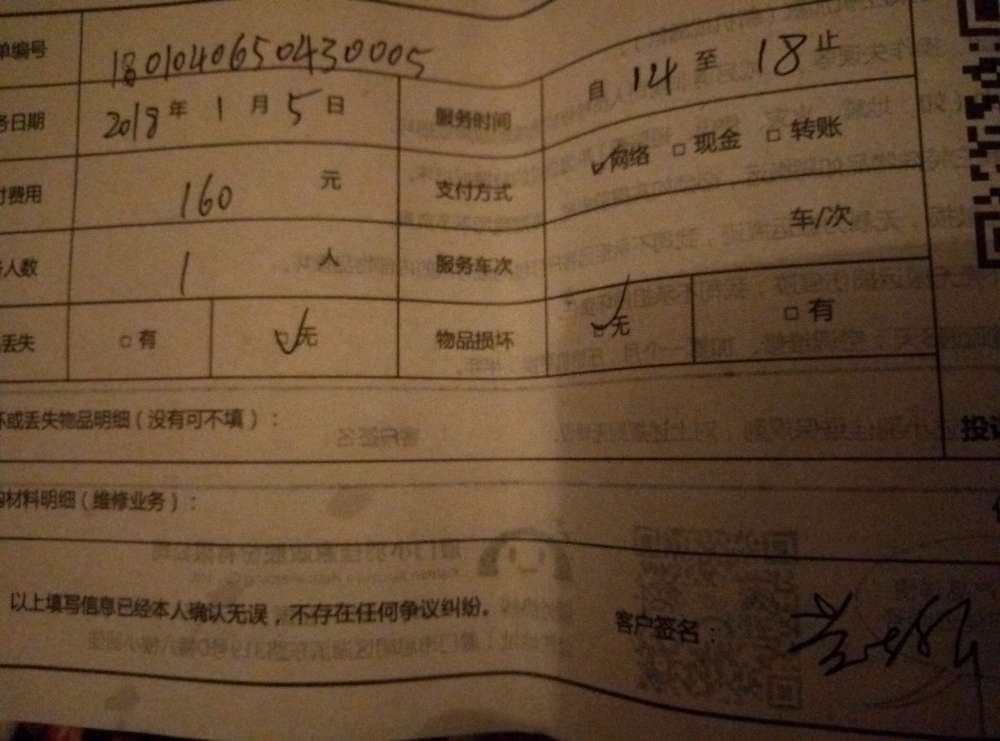 单编号 1801040650430005
务日期 2018 年 1 月 5 日 服务时间 自 14 至 18 止
付费用 160 元 支付方式 网络 □ 现金 □ 转账
人数 1 人 服务车次 车/次
丢失 □ 有 □ 无 物品损坏 □ 无 □ 有
坏或丢失物品明细(没有可不填): 投
材料明细(维修业务):
以上填写信息已经本人确认无误,不存在任何争议纠纷。 客户签名: